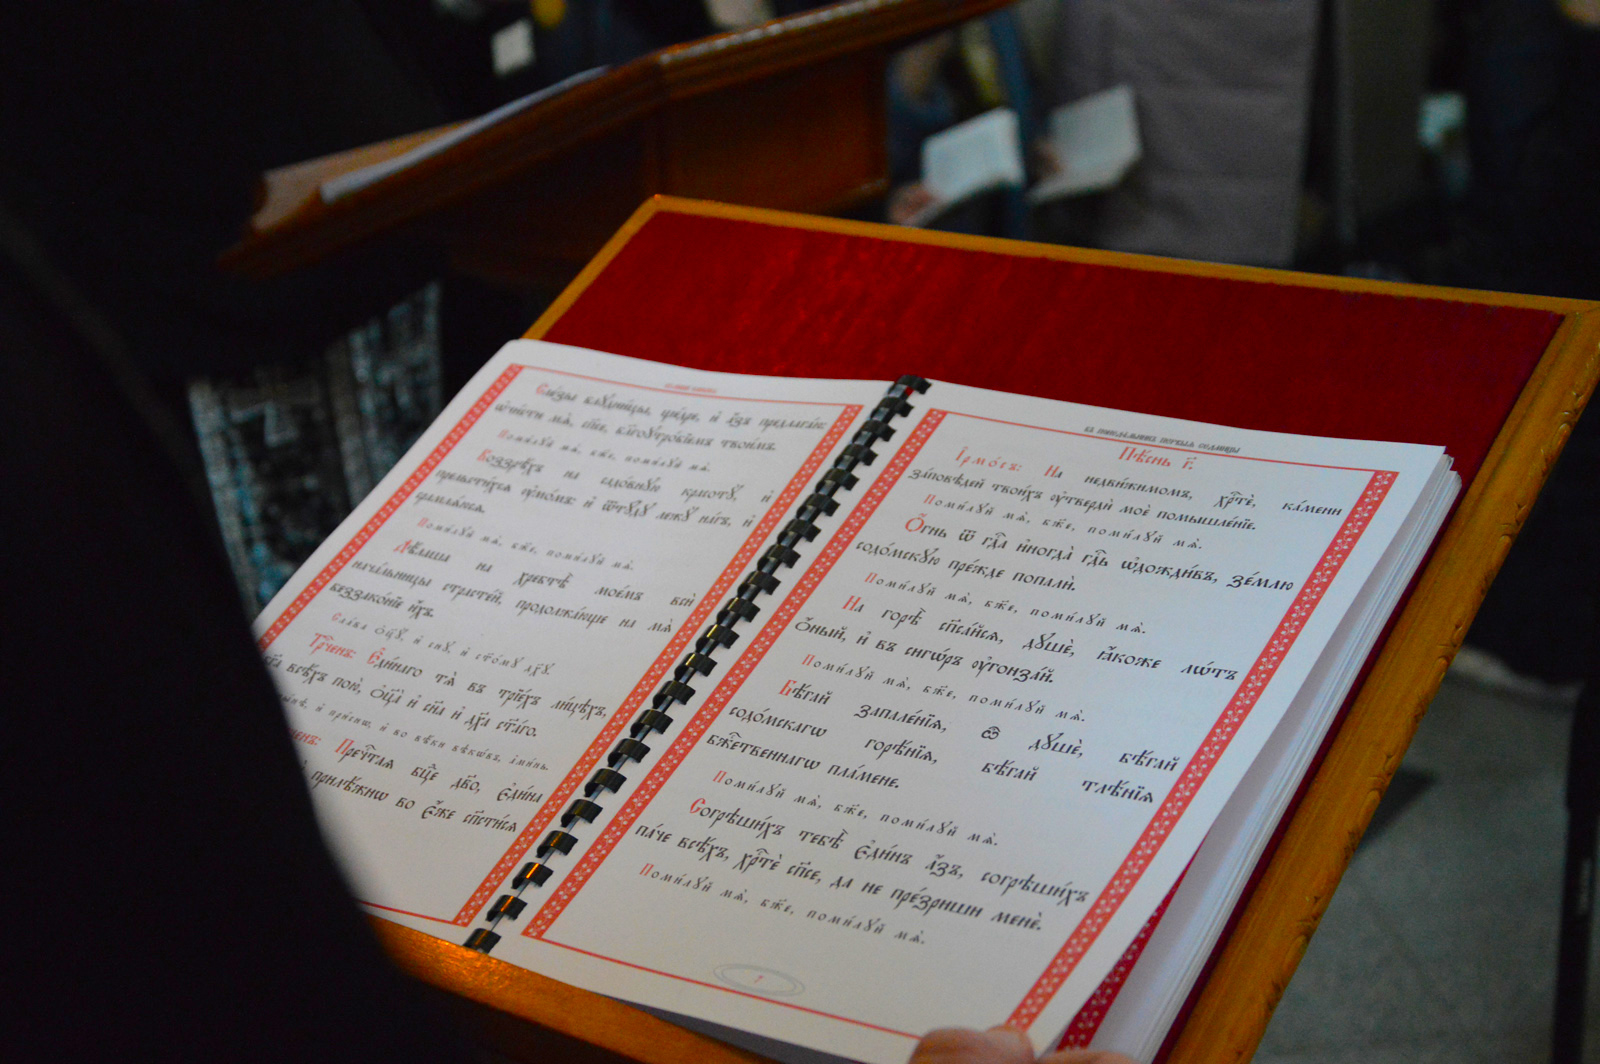 Сле́зы блꙋдни́цы, ще́дре, и҆ а҆́зъ предлага́ю:
ѡ҆чи́сти мѧ̀, сп҃се, бл҃гоꙋтро́бїемъ твои́мъ.
Поми́лꙋй мѧ̀, бж҃е, поми́лꙋй мѧ̀.
Воззрѣ́хъ на садо́внꙋю красотꙋ̀, и҆
прельсти́хсѧ ᲂу҆мо́мъ: и҆ ѿтꙋ́дꙋ лежꙋ̀ на́гъ, и҆
срамлѧ́юсѧ.
Поми́лꙋй мѧ̀, бж҃е, поми́лꙋй мѧ̀.
Дѣ́лаша на хребтѣ̀ мое́мъ всѝ
нача́льницы страсте́й, продолжа́юще на мѧ̀
беззако́нїе и҆́хъ.
Сла́ва ѻ҆ц҃ꙋ̀, и҆ сн҃ꙋ, и҆ ст҃о́мꙋ дх҃ꙋ.
Трⷪ҇ченъ: Е҆ди́наго тѧ̀ въ трїе́хъ ли́цѣхъ,
бг҃а всѣ́хъ пою̀, ѻ҆ц҃а̀ и҆ сн҃а и҆ дх҃а ст҃а́го.
и҆ при́снѡ, и҆ во вѣ́ки вѣкѡ́въ, а҆ми́нь.
Пречⷭ҇таѧ бцⷣе дв҃о, є҆ди́на
прилѣ́жнѡ во є҆́же спⷭ҇ти́сѧ
Пѣ́снь г҃.
І҆рмо́съ: На недви́жимомъ, хрⷭ҇тѐ, ка́мени
за́повѣдей твои́хъ ᲂу҆твердѝ моѐ помышле́нїе.
Поми́лꙋй мѧ̀, бж҃е, поми́лꙋй мѧ̀.
Ѻ҆́гнь ѿ гдⷭ҇а и҆ногда̀ гдⷭ҇ь ѡ҆дожди́въ, зе́млю
содо́мскꙋю пре́жде попалѝ.
Поми́лꙋй мѧ̀, бж҃е, поми́лꙋй мѧ̀.
На горѣ̀ спⷭ҇а́йсѧ, дꙋшѐ, ꙗ҆́коже лѡ́тъ
ѻ҆́ный, и҆ въ сигѡ́ръ ᲂу҆гонза́й.
Поми́лꙋй мѧ̀, бж҃е, поми́лꙋй мѧ̀.
Бѣ́гай запале́нїѧ, ѽ дꙋшѐ, бѣ́гай
содо́мскагѡ горѣ́нїѧ, бѣ́гай тлѣ́нїѧ
бжⷭ҇твеннагѡ пла́мене.
Поми́лꙋй мѧ̀, бж҃е, поми́лꙋй мѧ̀.
Согрѣши́хъ тебѣ̀ є҆ди́нъ а҆́зъ, согрѣши́хъ
па́че всѣ́хъ, хрⷭ҇тѐ сп҃се, да не пре́зриши менѐ.
Поми́лꙋй мѧ̀, бж҃е, поми́лꙋй мѧ̀.